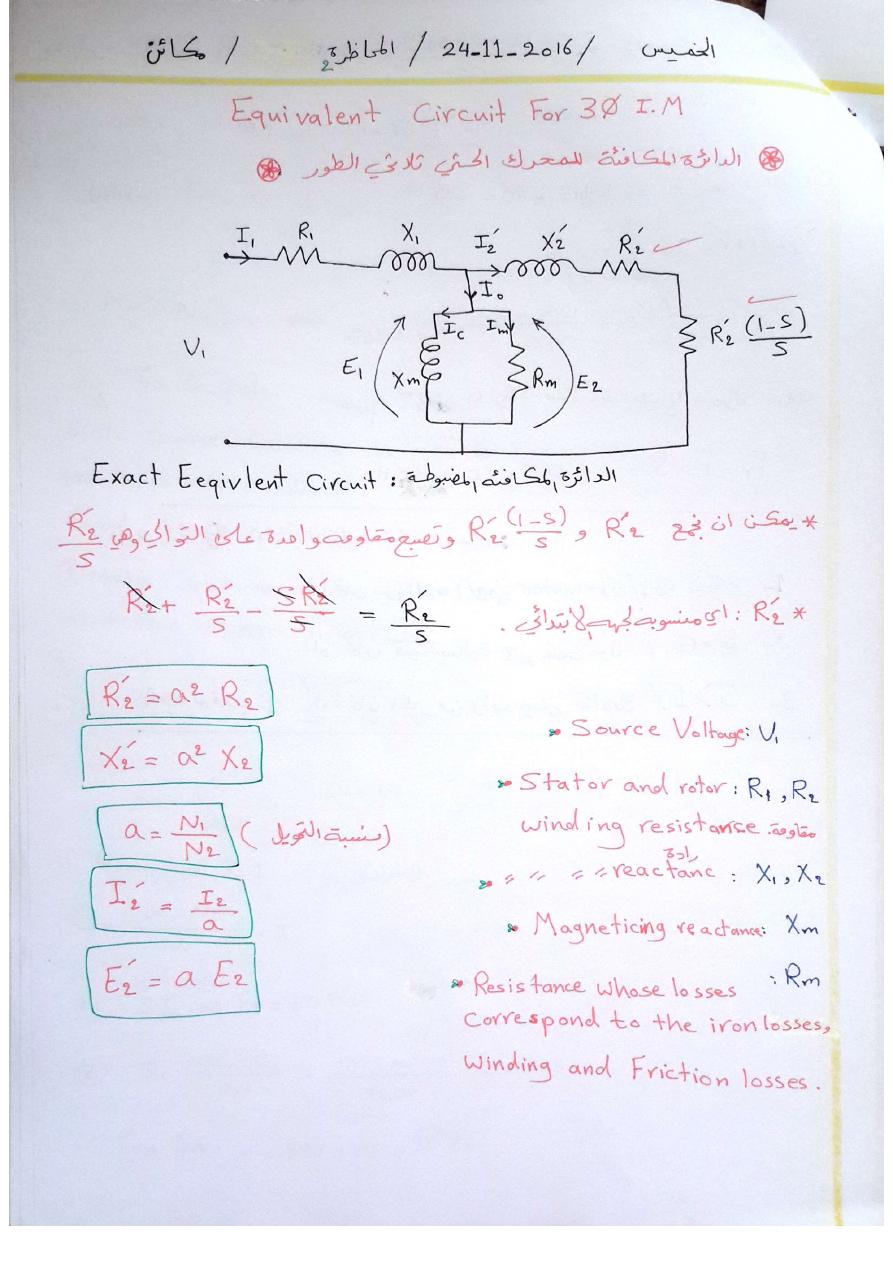 الخميس / 24-11-2016 / المحاظرة 2 / مكائن
Equivalent Circuit For 3Ø I.M
الدائرة المكافئة للمحرك الحثي ثلاثي الطور
I₁ R₁ X₁ I₂′ X₂′ R₂′
I₀
R₂′ (1-S)/S
V₁ E₁ Xm Ic Im Rm E₂
Exact Eeqivlent Circuit : الدائرة المكافئه المضبوطة
* يمكن ان نجمع R₂′ و R₂′ (1-S)/S وتصبح مقاومه واحدة على التوالي وهي R₂′/S
R₂′ + R₂′/S - SR₂′/S = R₂′/S
* R₂′ : اي منسوبه لجهه الابتدائي .
R₂′ = a² R₂
X₂′ = a² X₂
a = N₁/N₂ (نسبة التحويل)
I₂′ = I₂/a
E₂′ = a E₂
Source Voltage: V₁
Stator and rotor : R₁ , R₂
winding resistanse. مقاومة
رادة
〃 〃 〃 〃 reactanc : X₁ , X₂
Magneticing reactance: Xm
Resistance whose losses : Rm
Correspond to the iron losses,
Winding and Friction losses.